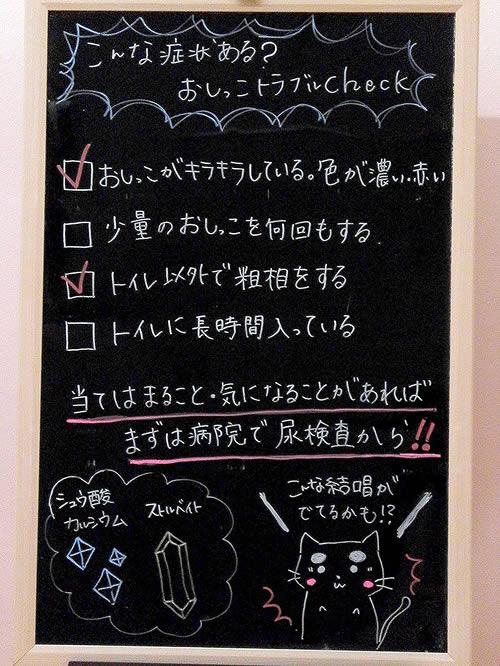 こんな症状ある?
おしっこトラブルCheck
おしっこがキラキラしている。色が濃い・赤い
少量のおしっこを何回もする
トイレ以外で粗相をする
トイレに長時間入っている
当てはまること・気になることがあれば
まずは病院で尿検査から!!
シュウ酸
カルシウム
ストルバイト
こんな結晶が
でてるかも!?